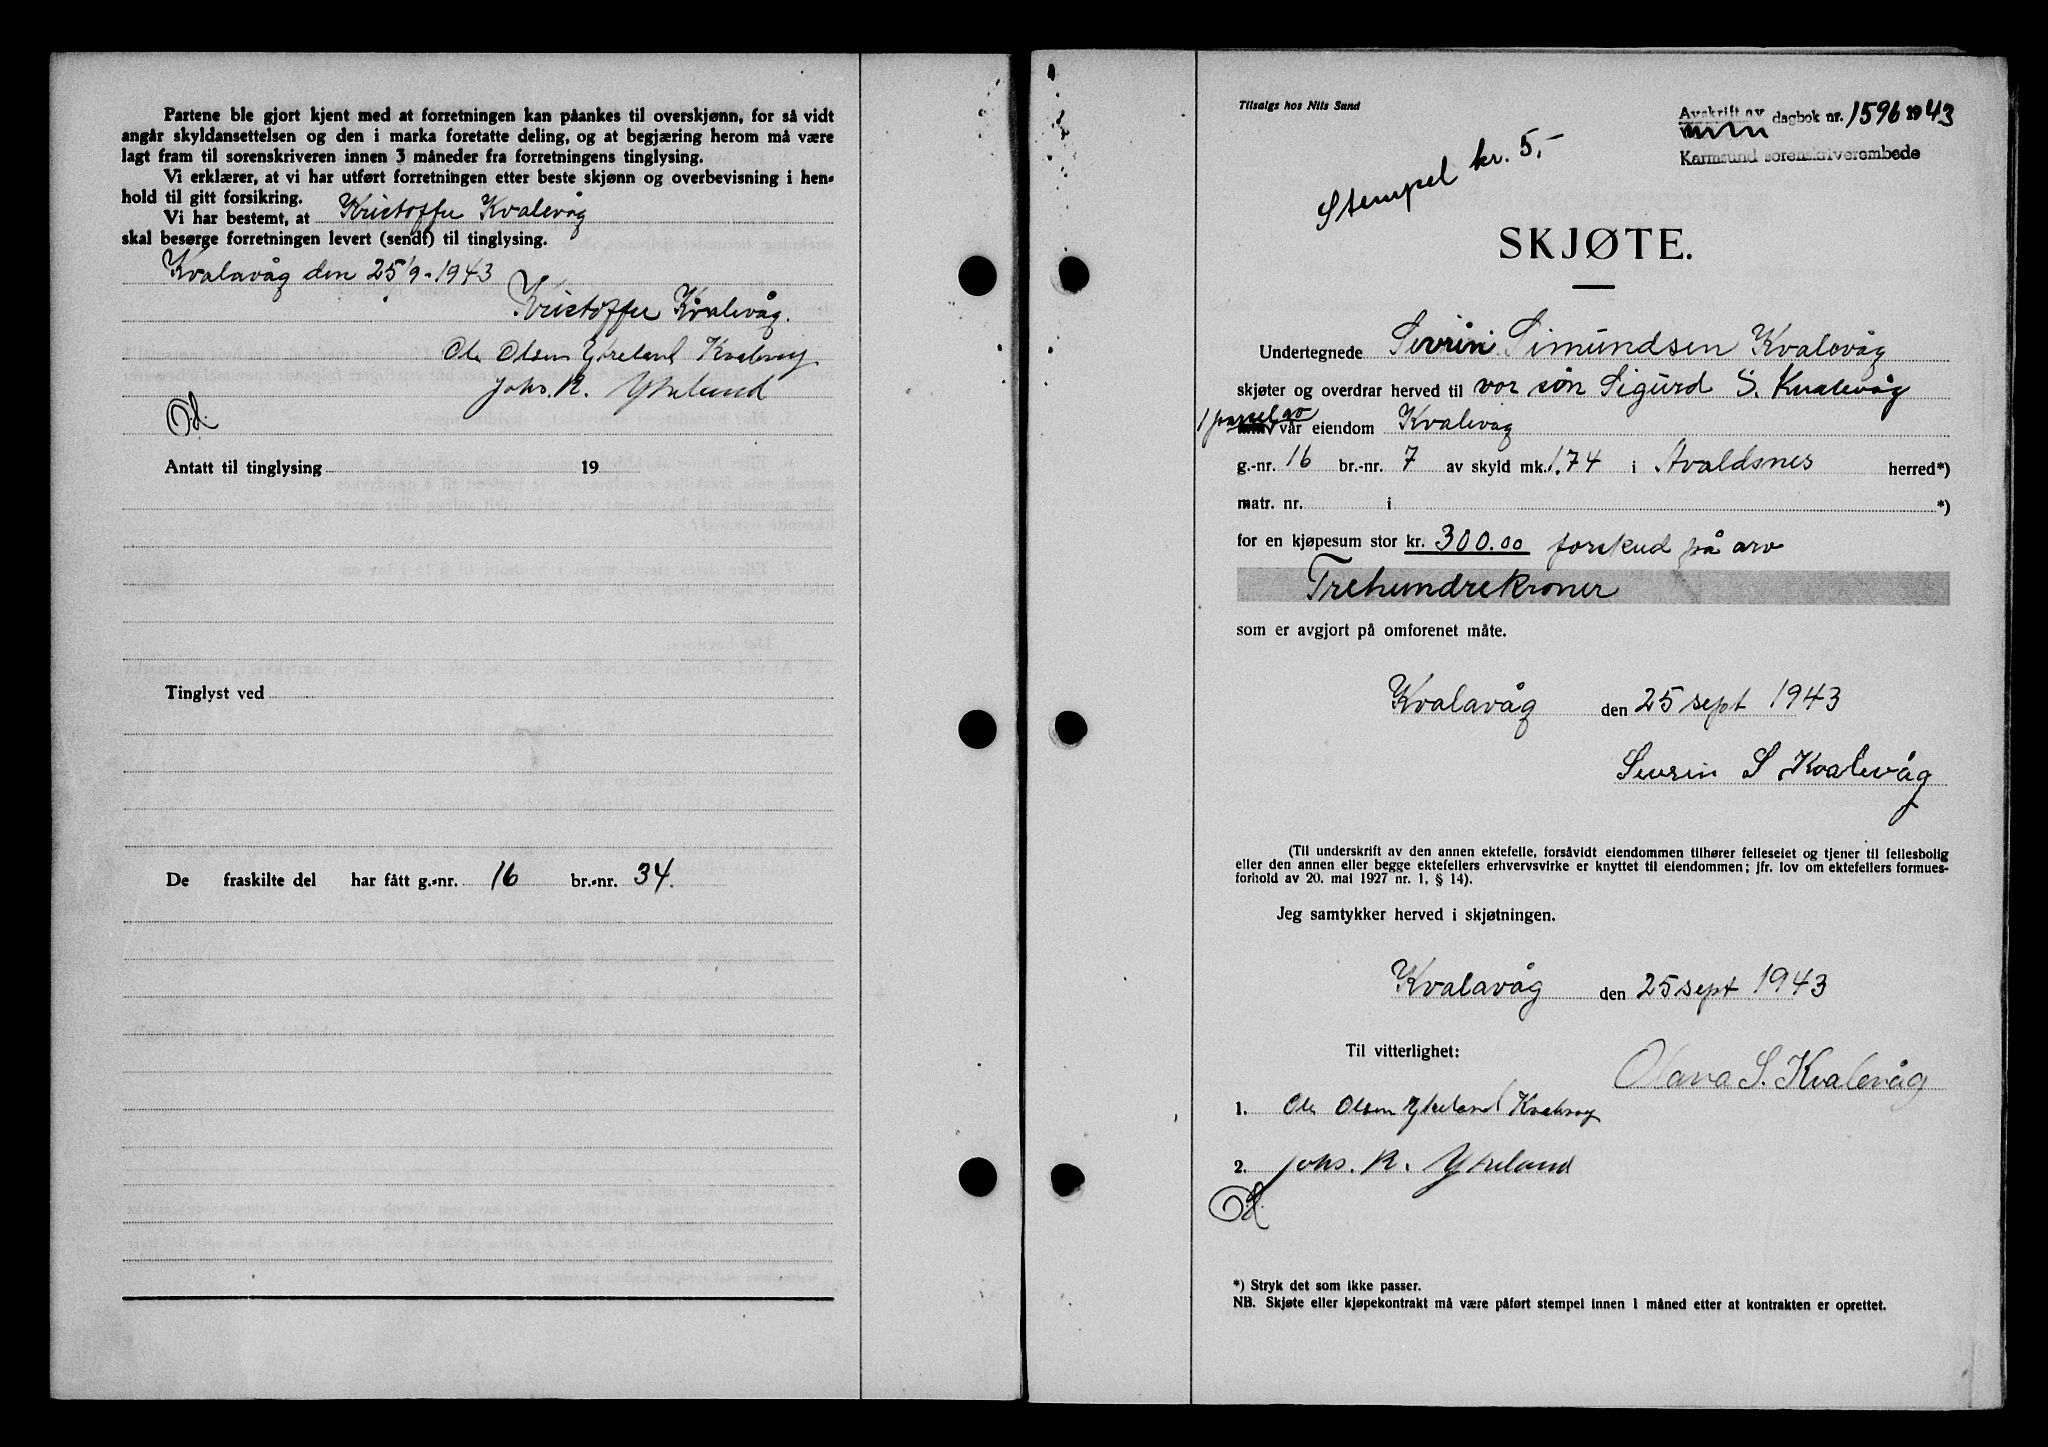 Partene ble gjort kjent med at forretningen kan påankes til overskjønn, for så vidt
angår skyldansettelsen og den i marka foretatte deling, og at begjæring herom må være
lagt fram til sorenskriveren innen 3 måneder fra forretningens tinglysing.
Vi erklærer, at vi har utført forretningen etter beste skjønn og overbevisning i hen-
hold til gitt forsikring.
Vi har bestemt, at Kristoffer Kvalevåg
skal besørge forretningen levert (sendt) til tinglysing.
Kvalavåg den 25/9-1943
Kristoffer Kvalevåg.
Ole Olsen Ytreland Kvalevåg
Johs. R. Ytreland
Antatt til tinglysing 19
Tinglyst ved
De fraskilte del har fått g.-nr. 16 br.-nr. 34.
Tilsalgs hos Nils Sund
Avskrift av dagbok nr. 1596 1943
Karmsund sorenskriverembede
Stempel kr. 5,-
SKJØTE.
Undertegnede Sivrin Simundsen Kvalevåg
skjøter og overdrar herved til vor søn Sigurd S. Kvalevåg
1 parsel av vår eiendom Kvalevåg
g.-nr. 16 br.-nr. 7 av skyld mk. 1.74 i Avaldsnes herred*)
matr. nr. i *)
for en kjøpesum stor kr. 300.00 forskud på arv
Trehundrekroner
som er avgjort på omforenet måte.
Kvalavåg den 25 sept 1943
Sevrin S Kvalevåg
(Til underskrift av den annen ektefelle, forsåvidt eiendommen tilhører felleseiet og tjener til fellesbolig
eller den annen eller begge ektefellers erhvervsvirke er knyttet til eiendommen; jfr. lov om ektefellers formues-
forhold av 20. mai 1927 nr. 1, § 14).
Jeg samtykker herved i skjøtningen.
Kvalavåg den 25 sept 1943
Til vitterlighet:
Olava S. Kvalevåg
1. Ole Olsen Ytreland Kvalevåg
2. Johs. R. Ytreland
*) Stryk det som ikke passer.
NB. Skjøte eller kjøpekontrakt må være påført stempel innen 1 måned etter at kontrakten er oprettet.